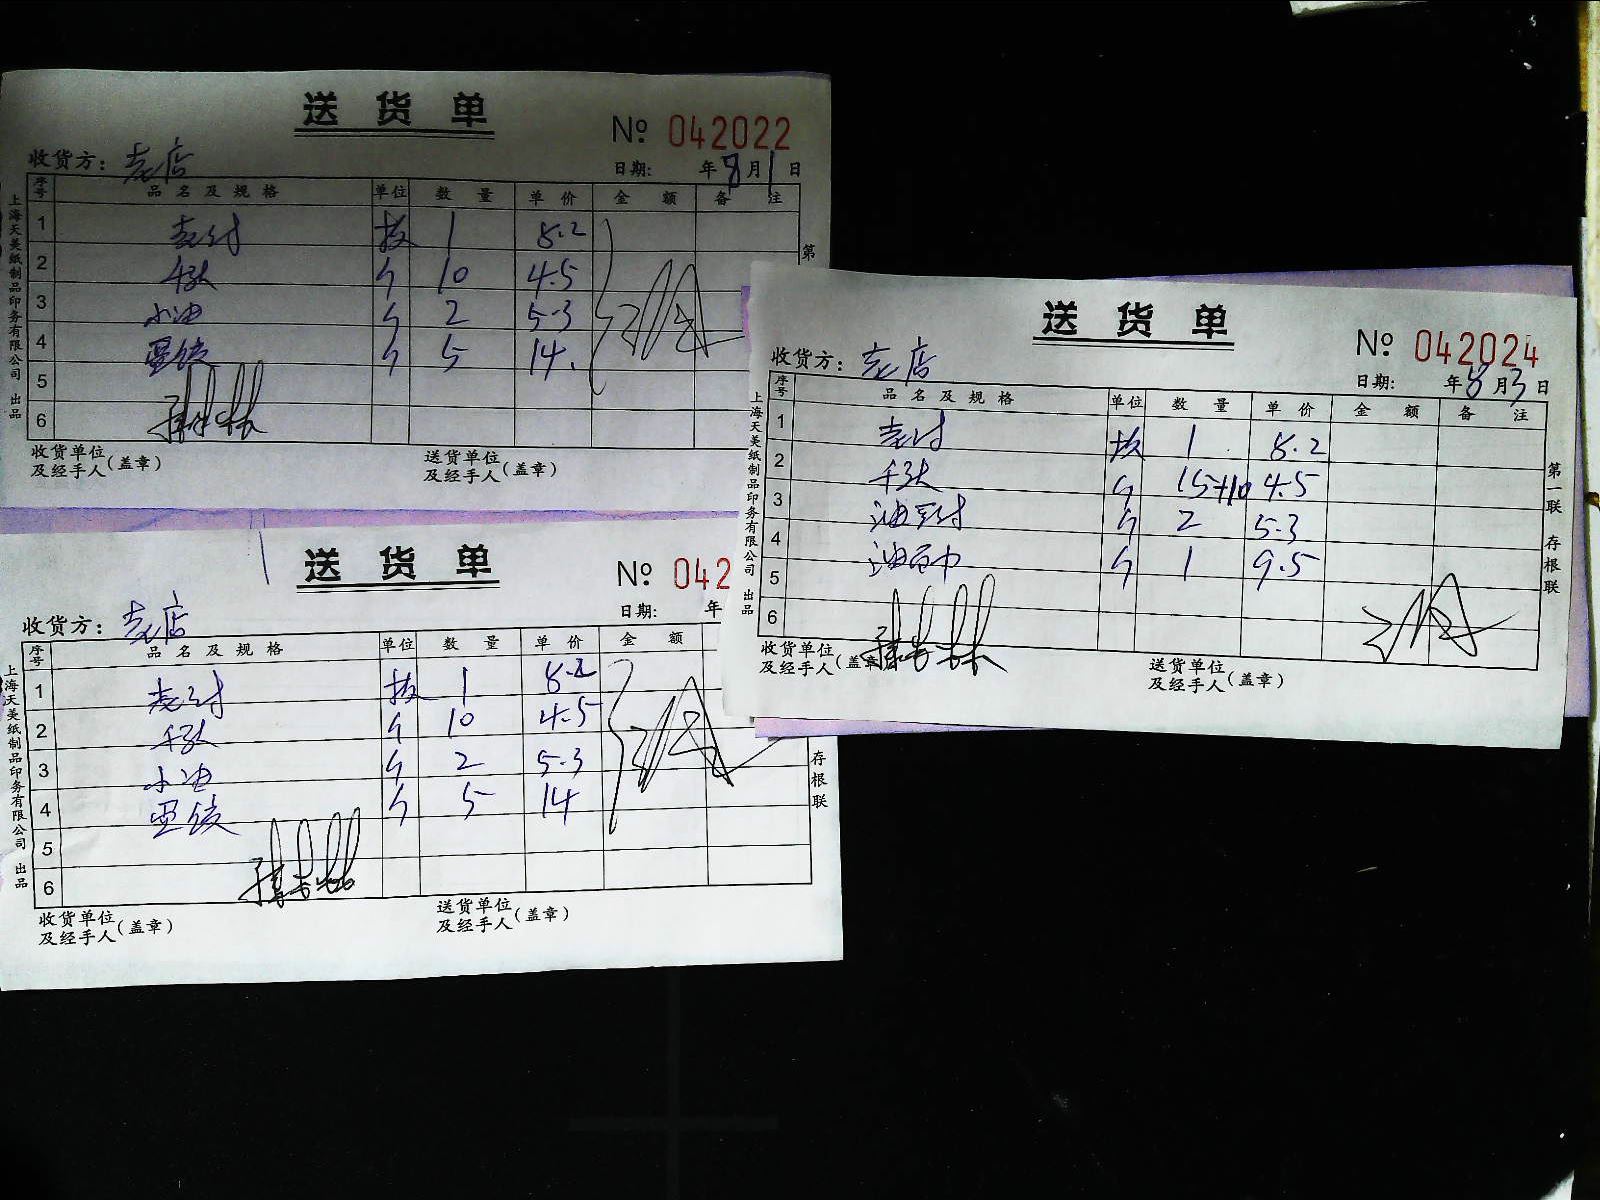 送货单
№ 042022
收货方： 老店
日期： 年8月1日
序号 品名及规格 单位 数量 单价 金额 备注
1 板 1 8.2
2 千张 个 10 4.5
3 小油 个 2 5.3
4 个 5 14.
5
6
收货单位及经手人（盖章） 送货单位及经手人（盖章）
上海天美纸制品印务有限公司 出品
第
送货单
№ 042
收货方： 老店
日期： 年
序号 品名及规格 单位 数量 单价 金额
1 板 1 8.2
2 千张 个 10 4.5
3 小油 个 2 5.3
4 个 5 14
5
6
收货单位及经手人（盖章） 送货单位及经手人（盖章）
上海天美纸制品印务有限公司 出品
存根联
送货单
№ 042024
收货方： 老店
日期： 年8月3日
序号 品名及规格 单位 数量 单价 金额 备注
1 板 1 8.2
2 千张 个 15+10 4.5
3 个 2 5.3
4 个 1 9.5
5
6
收货单位及经手人（盖章） 送货单位及经手人（盖章）
上海天美纸制品印务有限公司 出品
第一联 存根联